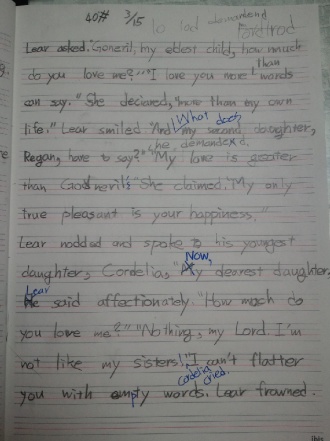 40# 3/15 to lod demandend
Lordlrod
Lear asked. "Goneril, my eldest child, how much
do you love me?" "I love you more than words
can say." She declared, "more than my own
life." Lear smiled "And What does my second daughter,
Regan, have to say?" he demanded. "My love is greater
than Goneril's" She claimed. "My only
true pleasant is your happiness."
Lear nodded and spoke to his youngest
daughter, Cordelia, "Now, My dearest daughter,
Lear said affectionately. "How much do
you love me?" "Nothing, my Lord. I'm
not like my sisters! I can't flatter
you with empty words. Cordelia cried. Lear frowned.